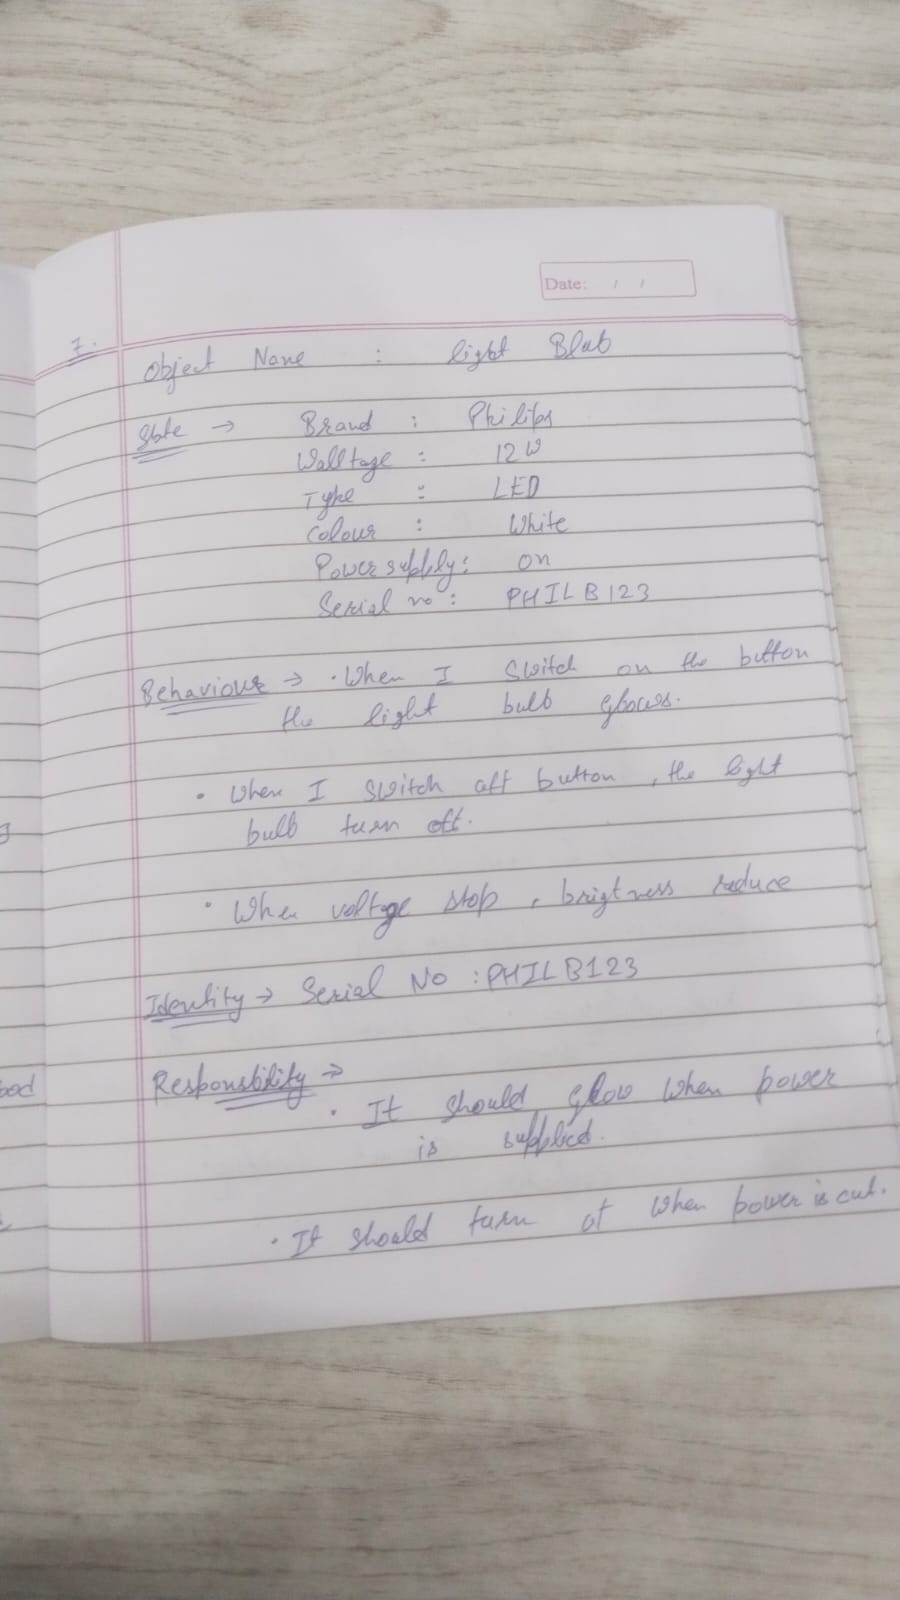 Date: / /
7.
Object Name : light Blub
State → Brand : Philips
Walltage : 12W
Type : LED
Colour : White
Power supply : on
Serial no : PHILB123
Behaviour → • When I switch on the button
the light bulb glows.
• When I switch off button, the light
bulb turn off.
• When voltage stop, brigtness reduce
Identity → Serial No : PHILB123
Responsbility →
• It should glow when power
is supplied.
• It should turn of when power is cut.